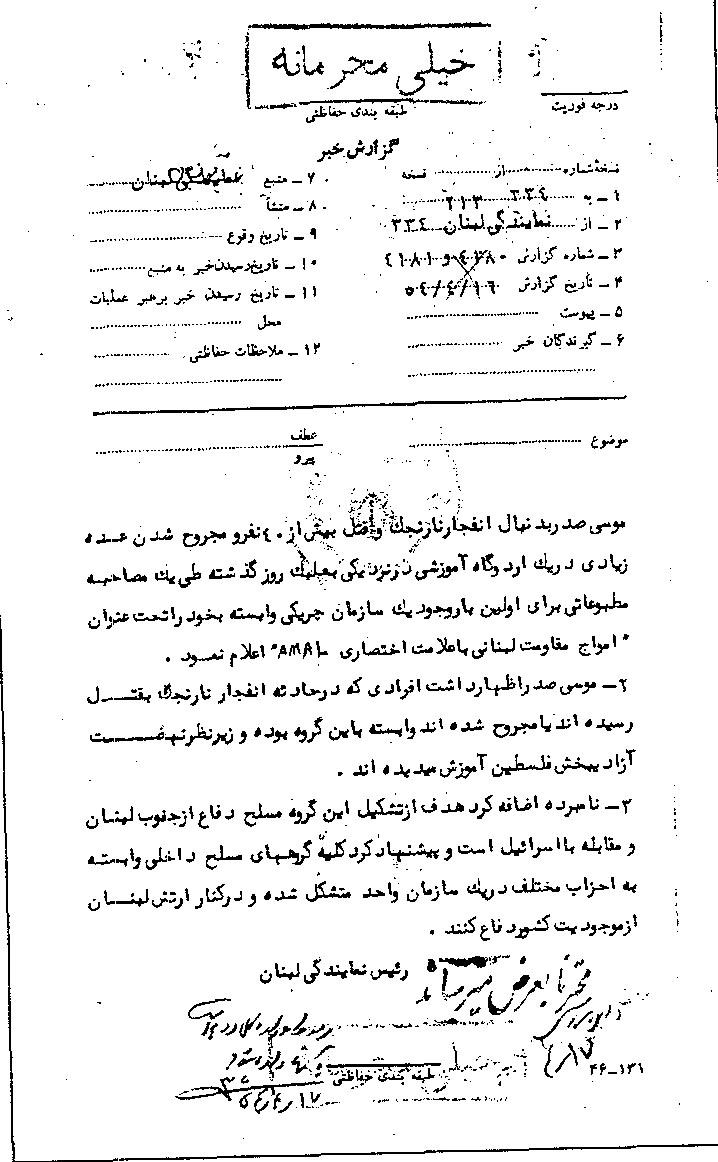 خیلی محرمانه
طبقه بندی حفاظتی
درجه فوریت
گزارش خبر
نسخهٔ شماره ............ از ............ نسخه
۱ - به ۳۳٤ ۲۱۳
۲ - از نمایندگی لبنان ۳۳٤
۳ - شماره گزارش
۴ - تاریخ گزارش ۵٤/٤/۱٦
۵ - پیوست
۶ - گیرندگان خبر
۷ - منبع
۸ - منشأ
۹ - تاریخ وقوع
۱۰ - تاریخ رسیدن خبر به منبع
۱۱ - تاریخ رسیدن خبر برهبر عملیات
محل
۱۲ - ملاحظات حفاظتی
موضوع
عطف
پیرو
موسی صدر بدنبال انفجار نارنجک و قتل بیش از ۴۰ نفر و مجروح شدن عده
زیادی در یک اردوگاه آموزشی در نزدیکی بعلبک روز گذشته طی یک مصاحبه
مطبوعاتی برای اولین بار وجود یک سازمان چریکی وابسته بخود را تحت عنوان
" امواج مقاومت لبنانی با علامت اختصاری AMAL" اعلام نمود .
۲ - موسی صدر اظهار داشت افرادی که در حادثه انفجار نارنجک بقتل
رسیده اند یا مجروح شده اند وابسته باین گروه بوده و زیر نظر نهضت
آزادیبخش فلسطین آموزش میدیده اند .
۳ - نامبرده اضافه کرد هدف از تشکیل این گروه مسلح دفاع از جنوب لبنان
و مقابله با اسرائیل است و پیشنهاد کرد کلیه گروههای مسلح داخلی وابسته
به احزاب مختلف در یک سازمان واحد متشکل شده و در کنار ارتش لبنان
از موجودیت کشور دفاع کنند .
رئیس نمایندگی لبنان
بعرض میرساند
۱۷/٤
طبقه بندی حفاظتی
۱۳۱-۴۶